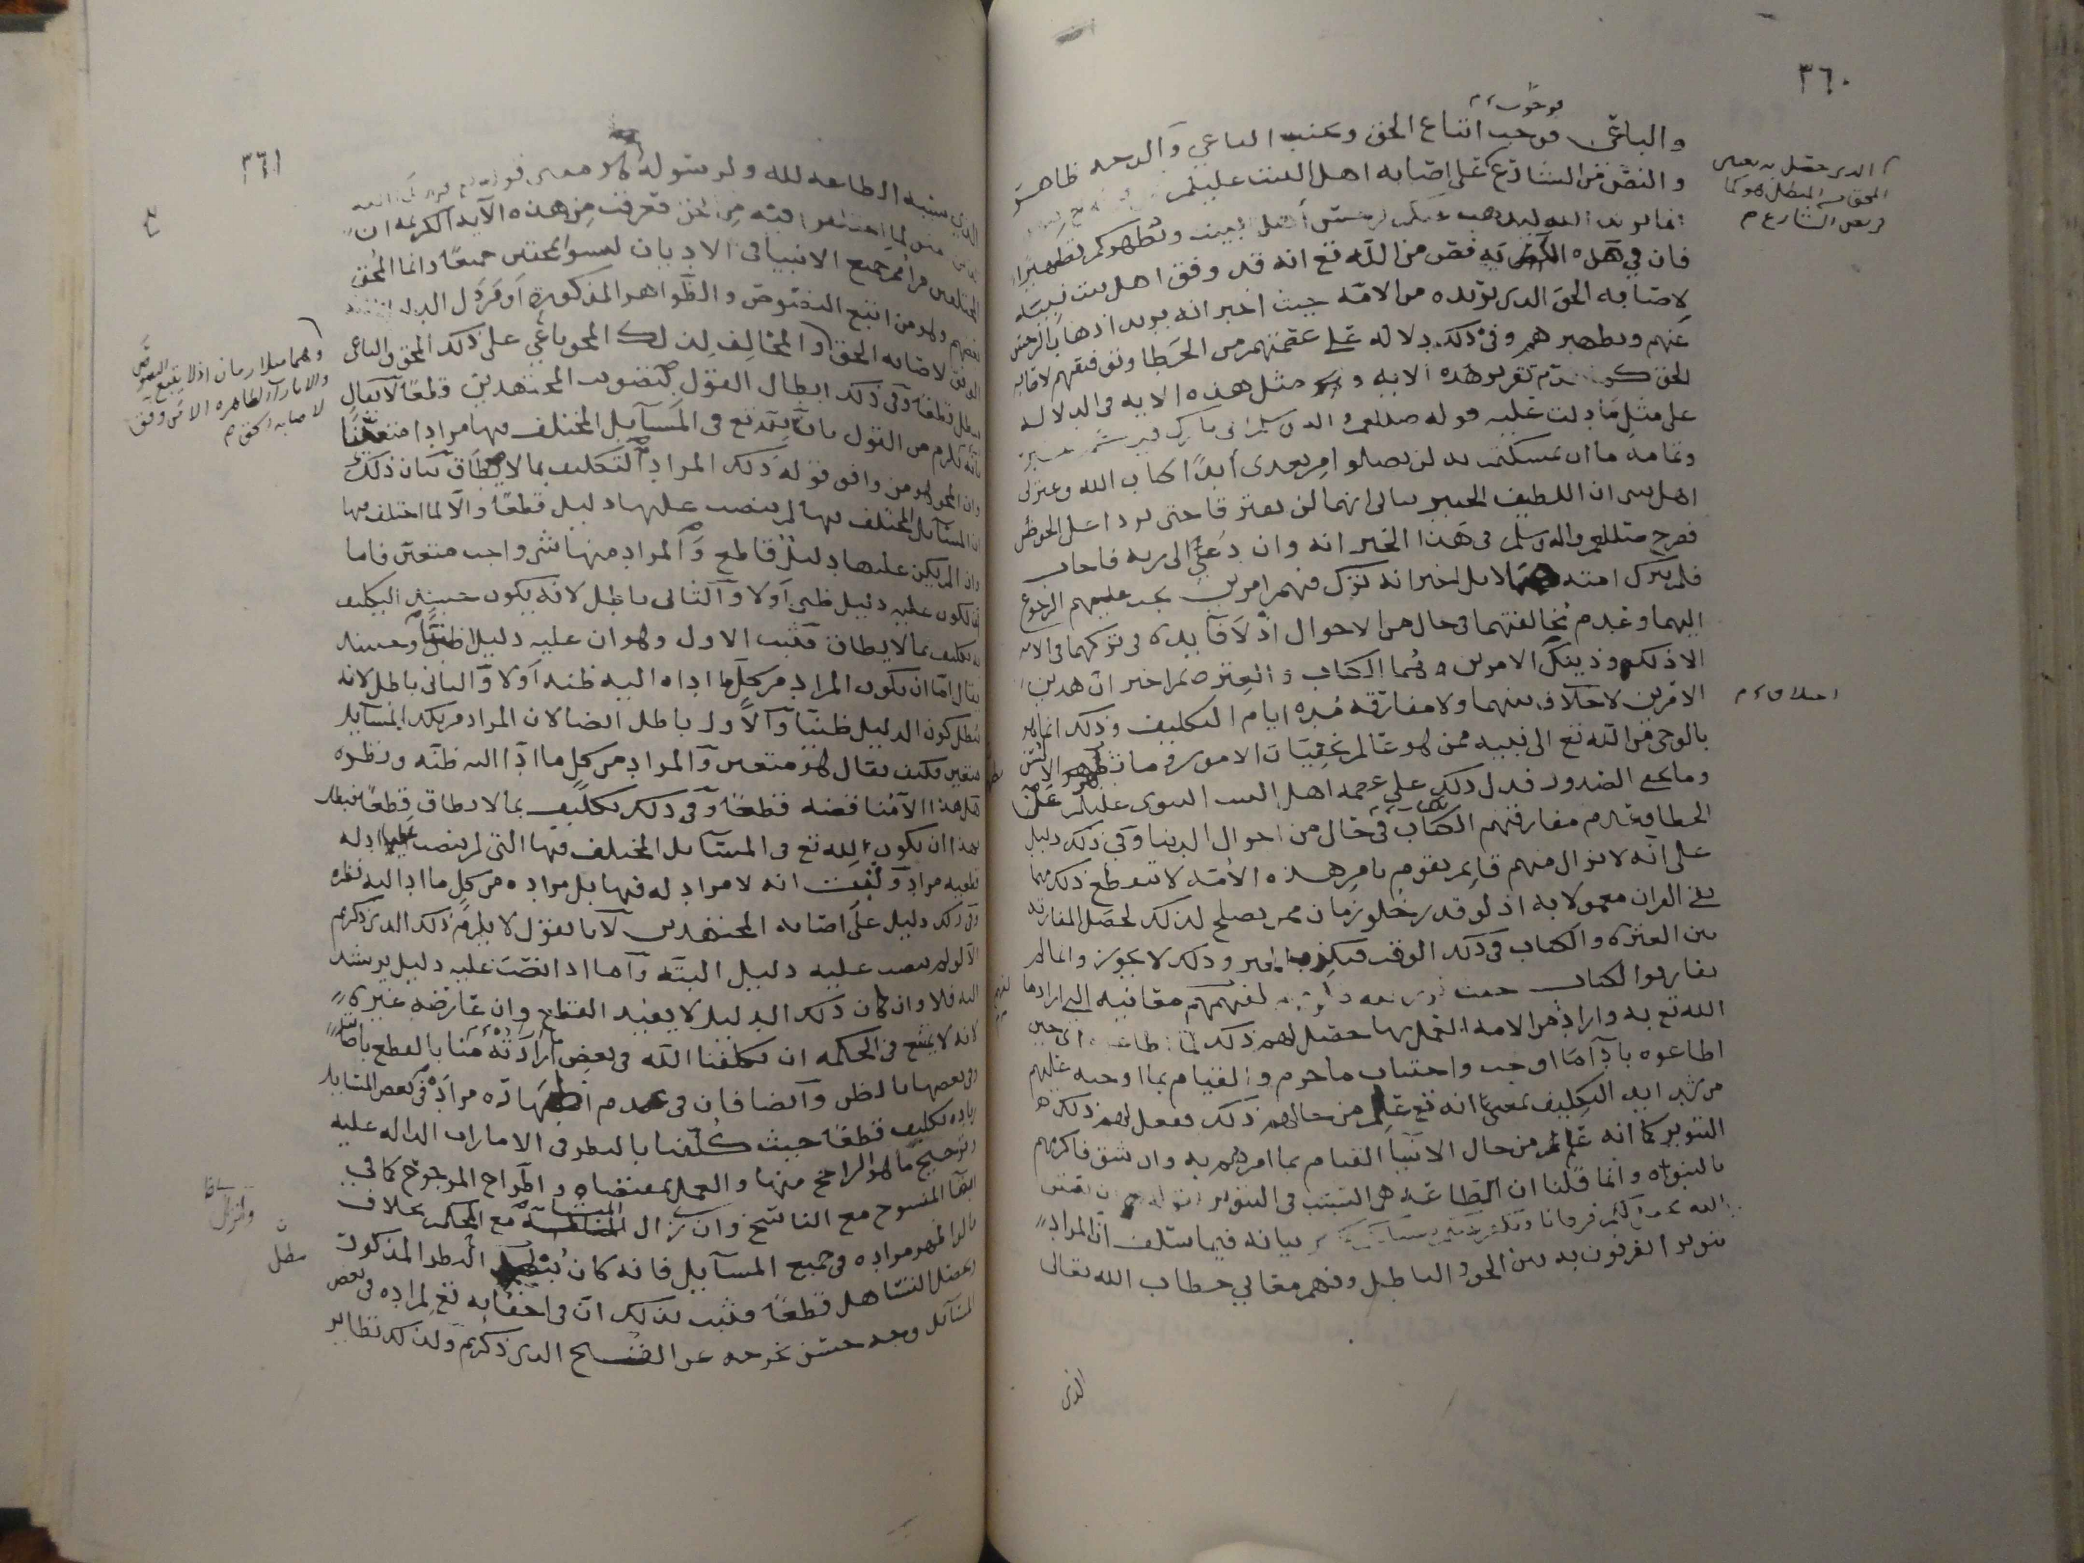 ٣٦٠
فوجوب
والباغي فوجب اتباع الحق وتجنب الباغي والدرجه ظاهره
والنص من الشارع على اصابه اهل البيت عليلم
انما يريد الله ليذهب عنكم الرجس اهل البيت ويطهركم تطهيرا
فان في هذه الآيه نص من الله تع انه قد وفق اهل بيت نبيه
لاصابه الحق الذي يريده من الامه حيث اخبر انه يريد اذهاب الرجس
عنهم وتطهيرهم وفي ذلك دلاله على عصمتهم من الخطا وتوفيقهم لاصابه
الحق تقرير هذه الايه و مثل هذه الايه في الدلاله
على مثل ما دلت عليه قوله صللم اني تارك فيكم
وتمامه ما ان تمسكتم به لن تضلوا من بعدي ابدا كتاب الله وعترتي
اهل بيتي ان اللطيف الخبير نباني انهما لن يفترقا حتى يردا علي الحوض
فصرح صللم في هذا الخبر انه وان دعي الى ربه فاجاب
فلم يترك امته هملا بل اخبر انه ترك فيهم امرين يجب عليهم الرجوع
اليهما وعدم مخالفتهما في حال من الاحوال اذ لا فايده في تركهما في الامه
الا ذلك وذينك الامرين هما الكتاب والعتره ثم اخبر ان هذين
الامرين لا خلاف بينهما ولا مفارقه مده ايام التكليف وذلك انما هو
بالوحي من الله تع الى نبيه ممن هو عالم بخفيات الامور
وما تخفي الصدور فدل ذلك على عصمه اهل البيت النبوي عليلم عن
الخطا وعدم مفارقتهم الكتاب في حال من احوال الدنيا وفي ذلك دليل
على انه لا يزال منهم قايم يقوم بامر هذه الامه لا ينقطع ذلك مهما
بقي القران معمولا به اذ لو قدر خلو زمان ممن يصلح لذلك لحصل المفارقه
بين العتره والكتاب في ذلك الوقت فيكذب الخبر وذلك لا يجوز وانما لم
يفارقوا الكتاب حيث لفهمهم معانيه التي ارادها
الله تع به واراد من الامه العمل بها حصل لهم ذلك
اطاعوه باداء ما اوجب واجتناب ما حرم والقيام بما اوجبه عليهم
التكليف بمعنى انه تع علم من حالهم ذلك ففعل لهم ذلك
التنوير كما انه علم من حال الانبيا القيام بما امرهم به وان شق فاكرمهم
بالنبوه وانما قلنا ان الطاعه هي السبب في التنوير
يجعل لكم فرقانا بيانه فيما سلف ان المراد
تنوير يفرقون به بين الحق والباطل وفهم معاني خطاب الله تعالى
الذي
الذي حصل به
المحق من المبطل هو كما
نص الشارع
اختلاف
٣٦١
الذي سببه الطاعه لله ولرسوله
لما اختلفوا فيه من الحق فعرفت من هذه الآيه الكريمه ان
المختلفين من امم جميع الانبيا في الاديان ليسوا محقين جميعا وانما المحق
بعضهم وهو من اتبع النصوص والظواهر المذكوره
الموفق لاصابه الحق والمخالف لذلك المحق باغي على ذلك المحق والباغي
مبطل قطعا وفي ذلك ابطال القول بتصويب المجتهدين قطعا لا يقال
بانه يلزم من القول بان لله تع في المسايل المختلف فيها مرادا متعينا
وان المحق هو من وافق قوله ذلك المراد التكليف بما لا يطاق بيان ذلك
ان المسايل المختلف فيها لم ينصب عليها دليل قطعا والا لما اختلف فيها
وان لم يكن عليها دليل قاطع والمراد منها شي واحد متعين فاما
ان يكون عليه دليل ظني اولا والثاني باطل لانه يكون حينئذ التكليف
به تكليف بما لا يطاق فثبت الاول وهو ان عليه دليلا ظنيا وحينئذ
يقال اما ان يكون المراد من كل ما اداه اليه ظنه اولا والثاني باطل لانه
يبطل كون الدليل ظنيا والاول باطل ايضا لان المراد من تلك المسايل
متعين فكيف يقال هو متعين والمراد من كل ما ادا اليه ظنه ونظره
هل هذا الا مناقضه قطعا وفي ذلك تكليف بما لا يطاق قطعا فبطل
بهذا ان يكون لله تع في المسايل المختلف فيها التي لم ينصب عليها ادله
قطعيه مراد وثبت انه لا مراد له فيها بل مراده من كل ما ادا اليه نظره
وفي ذلك دليل على اصابه المجتهدين لانا نقول لا يلزم ذلك الذي ذكرتم
الا لو لم ينصب عليه دليل البته واما اذا نصب عليه دليل يرشد
اليه فلا وان كان ذلك الدليل لا يفيد القطع وان عارضه غيره
لانه لا يمتنع في الحكمه ان يكلفنا الله في بعض ما اراده منا بالقطع باصابته
وفي بعضها بالظن وايضا فان في عدم اظهاره مراده في بعض المسايل
زياده تكليف قطعا حيث كلفنا بالنظر في الامارات الداله عليه
وترجيح ما هو الراجح منها والعمل بمقتضاه واطراح المرجوح كما في
ابقا المنسوخ مع الناسخ وانزال المتشابه مع المحكم بخلاف
ما لو اظهر مراده في جميع المسايل فانه كان يبطل النظر المذكور
ويحصل التساهل قطعا فثبت بذلك ان في اخفايه تع لمراده في بعض
المسايل وجه حسن يخرجه عن القبيح الذي ذكرتم ولذلك نظاير
وهما متلازمان اذ لا يتبع النصوص
والامارات الظاهره الا من وفق
لاصابه الحق
وانزال
يبطل